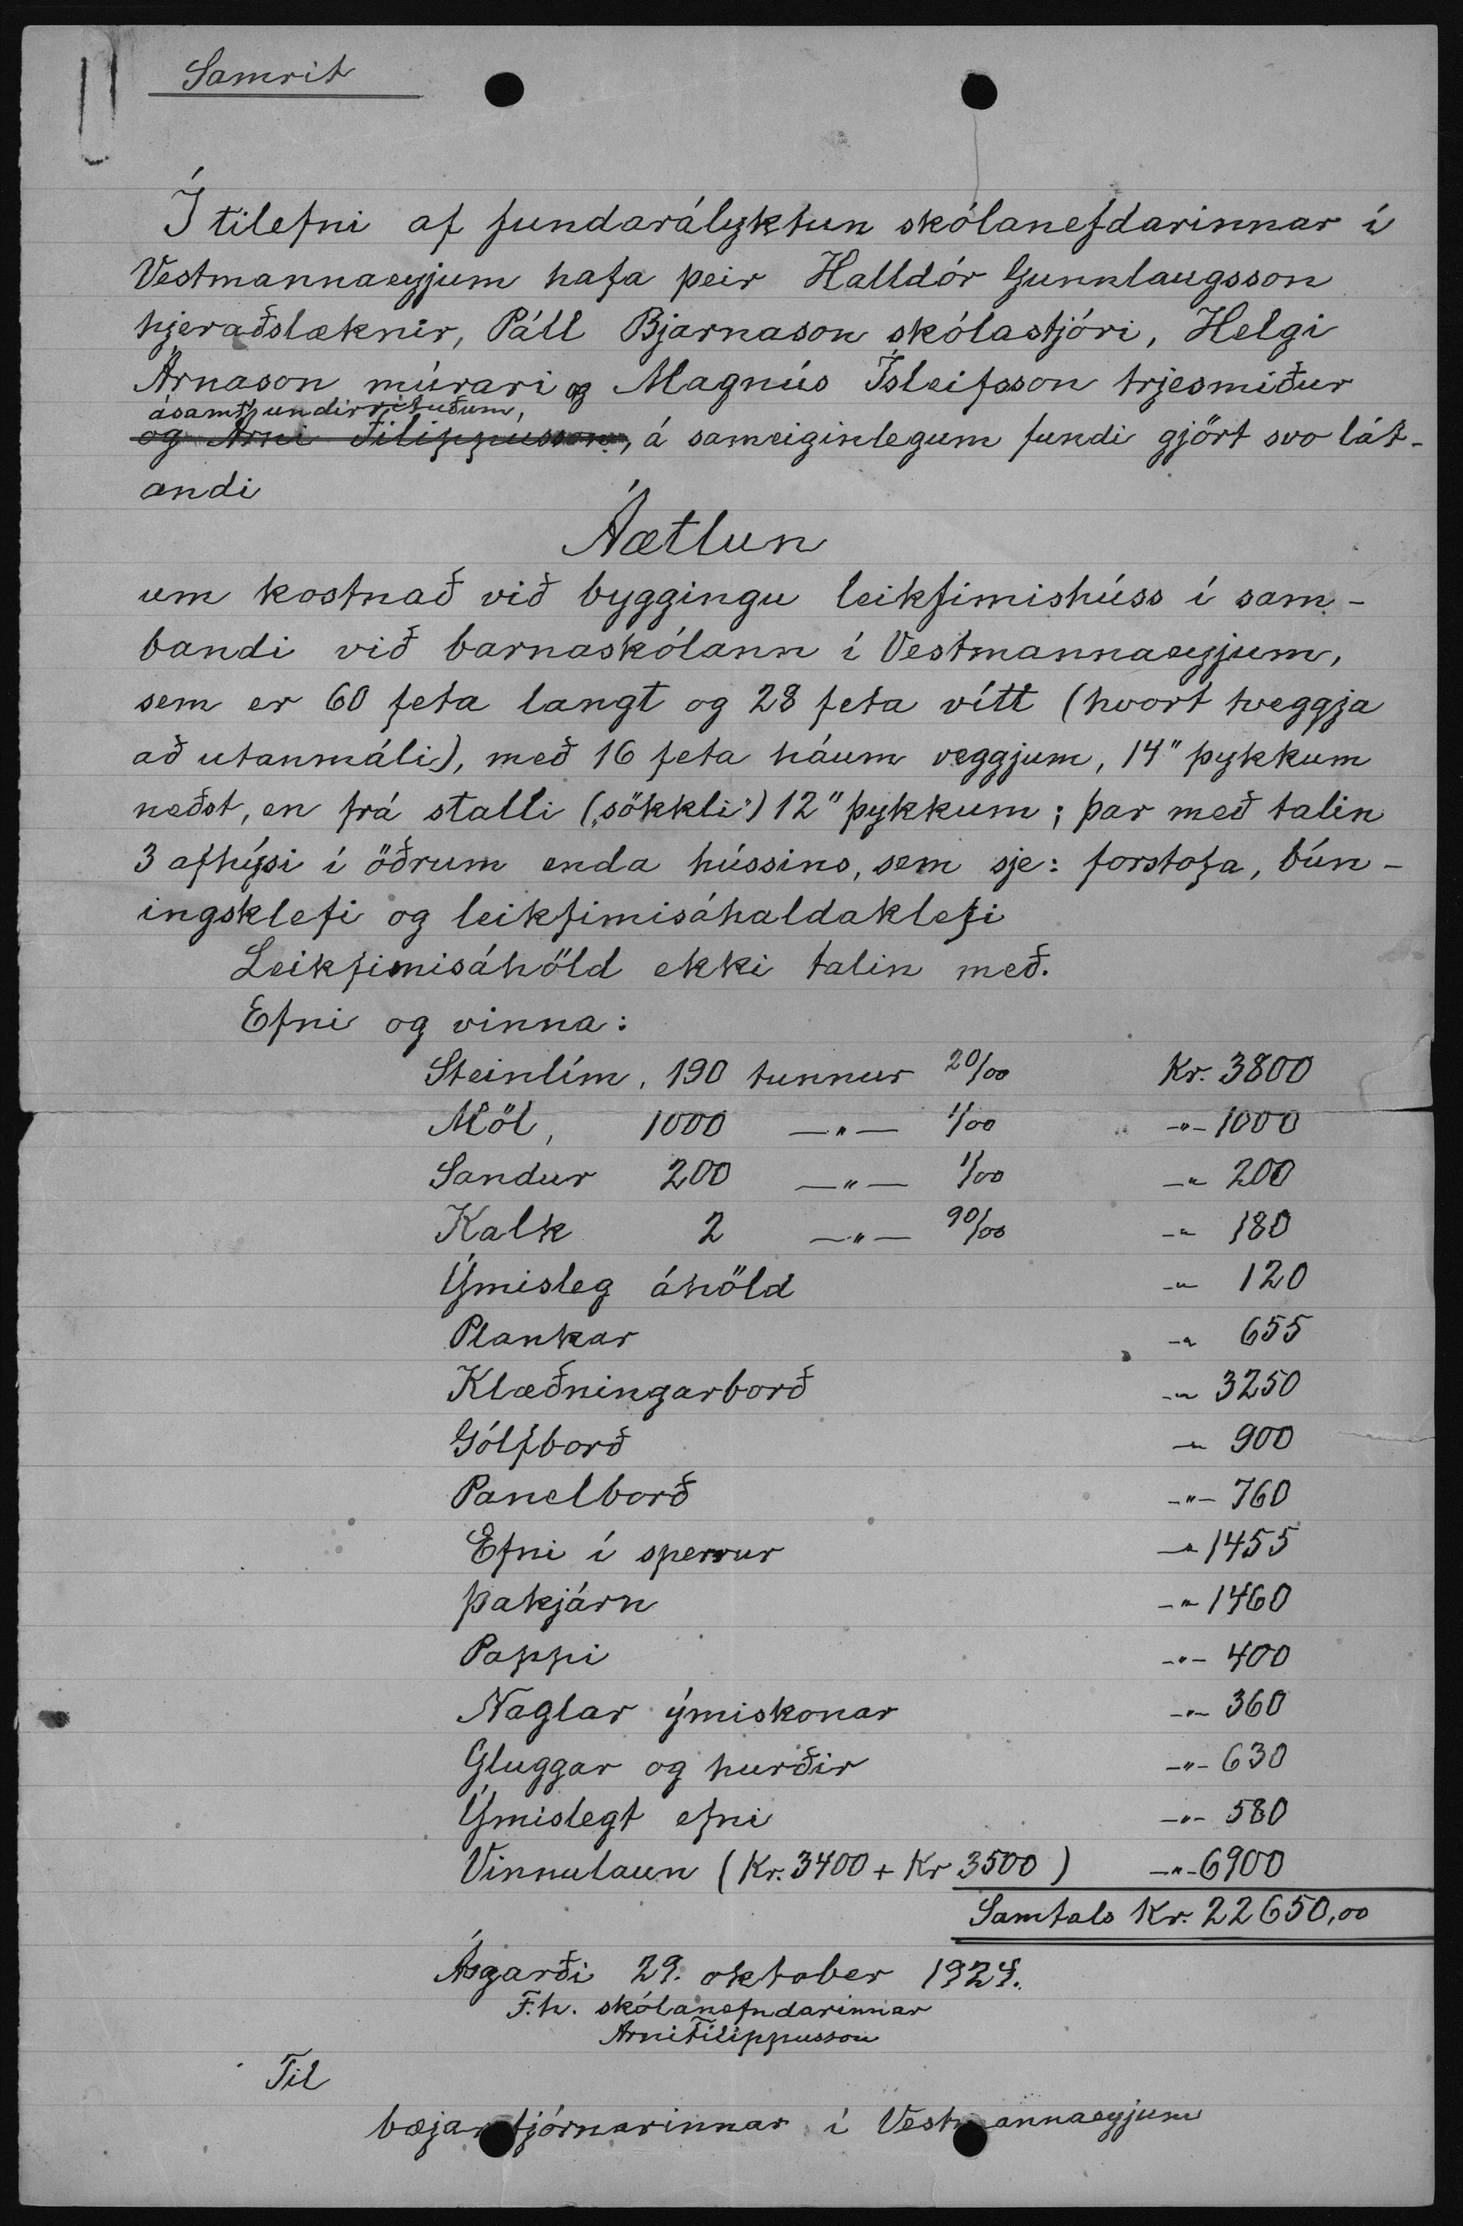 Samrit
Í tilefni af fundarályktun skólanefdarinnar í
Vestmannaeyjum hafa þeir Halldór Gunnlaugsson
hjeraðslæknir, Páll Bjarnason skólastjóri, Helgi
Árnason múrari og Magnús Ísleifsson trjesmiður
ásamt undirrituðum,
og Árni Filippusson, á sameiginlegum fundi gjört svo lát-
andi
Áætlun
um kostnað við byggingu leikfimishúss í sam-
bandi við barnaskólann í Vestmannaeyjum,
sem er 60 feta langt og 28 feta vítt (hvort tveggja
að utanmáli), með 16 feta háum veggjum, 14" þykkum
neðst, en frá stalli („sökkli") 12" þykkum; þar með talin
3 afhýsi í öðrum enda hússins, sem sje: forstofa, bún-
ingsklefi og leikfimisáhaldaklefi
Leikfimisáhöld ekki talin með.
Efni og vinna:
Steinlím, 190 tunnur 20/00 Kr. 3800
Möl, 1000 —"— 1/00 -"- 1000
Sandur 200 —"— 1/00 -"- 200
Kalk 2 —"— 90/00 -"- 180
Ýmisleg áhöld -"- 120
Plankar -"- 655
Klæðningarborð -"- 3250
Gólfborð -"- 900
Panelborð -"- 760
Efni í sperrur -"- 1455
Þakjárn -"- 1460
Pappi -"- 400
Naglar ýmiskonar -"- 360
Gluggar og hurðir -"- 630
Ýmislegt efni -"- 580
Vinnulaun (Kr. 3400 + Kr 3500) -"- 6900
Samtals Kr. 22650,00
Ásgarði 29. oktober 1924.
F.h. skólanefndarinnar
Árni Filippusson
Til
bæjarstjórnarinnar í Vestmannaeyjum